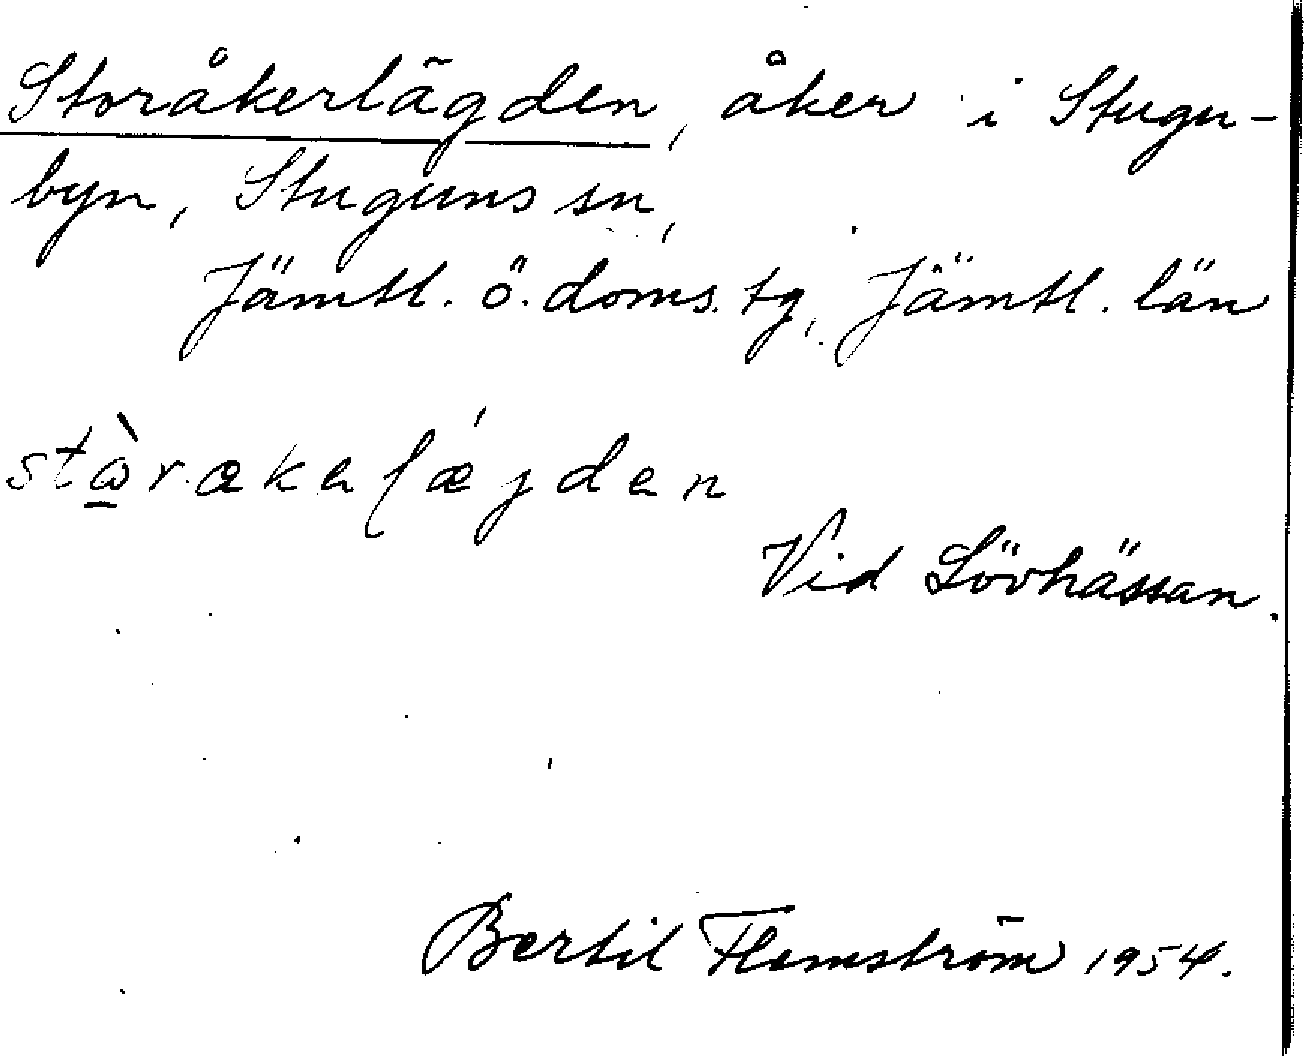 Storåkerlägden, åker i Stugu-
byn, Stuguns sn,
Jämtl. ö. doms. tg, Jämtl. län
stὼ̲rækalǽjdan
Vid Lövhässan.
Bertil Flemström 1954.